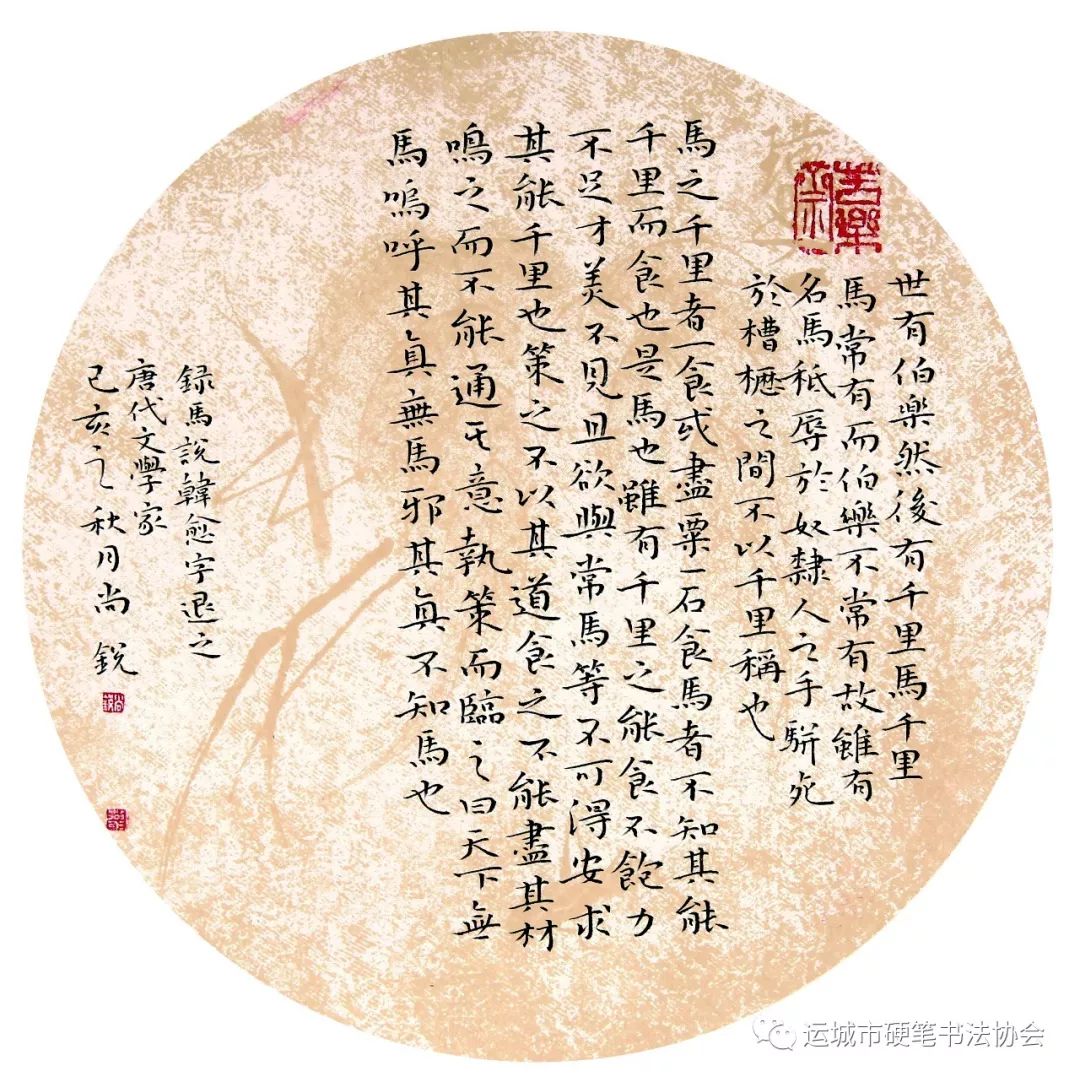 世有伯樂然後有千里馬千里
馬常有而伯樂不常有故雖有
名馬秪辱於奴隸人之手駢死
於槽櫪之間不以千里稱也
馬之千里者一食或盡粟一石食馬者不知其能
千里而食也是馬也雖有千里之能食不飽力
不足才美不見且欲與常馬等不可得安求
其能千里也策之不以其道食之不能盡其材
鳴之而不能通其意執策而臨之曰天下無
馬嗚呼其真無馬邪其真不知馬也
録馬說韓愈字退之
唐代文學家
己亥之秋月尚銳
运城市硬笔书法协会